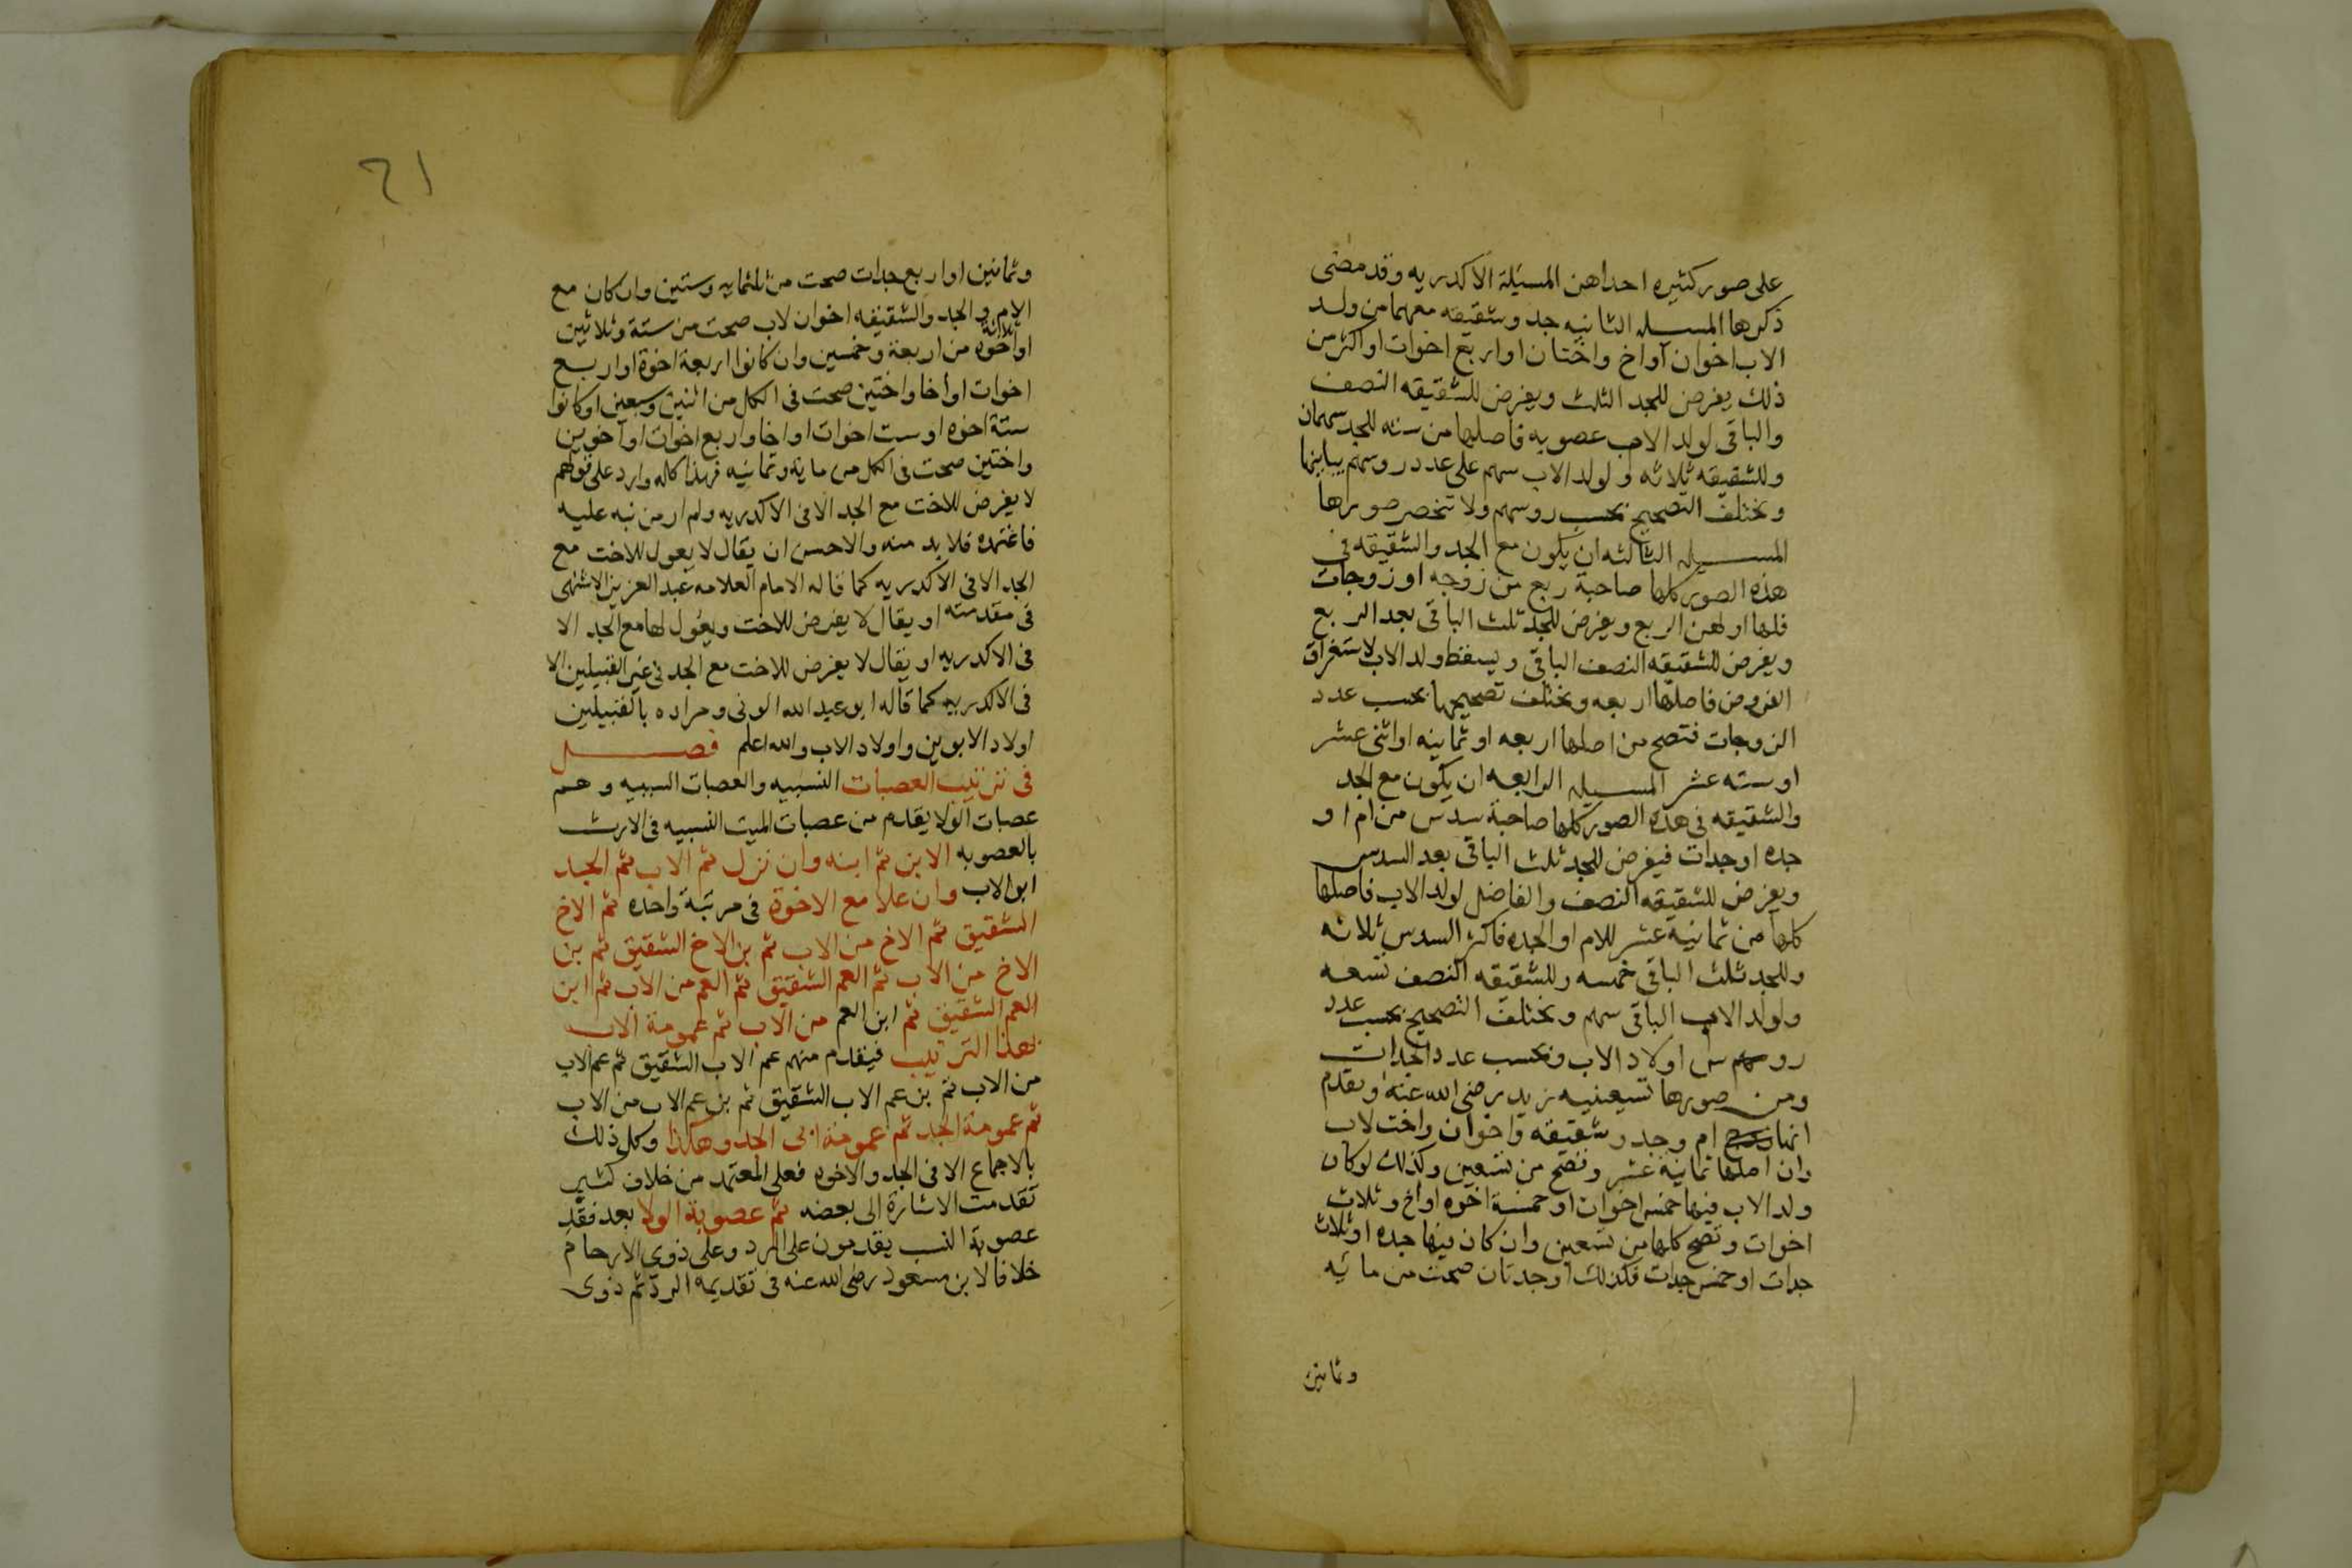 على صور كثيره احداهن المسئلة الاكدريه وقد مضى
ذكرها المسيله الثانيه جد وشقيقه معهما من ولد
الاب اخوان او اخ واختان او اربع اخوات او اكثر من
ذلك يفرض للجد الثلث ويفرض للشقيقه النصف
والباقى لولد الاب عصوبه فاصلها من سته للجد سهمان
وللشقيقه ثلاثه ولولد الاب سهم على عدد روسهم يباينها
ويختلف التصحيح بحسب روسهم ولا تنحصر صورها
المسيله الثالثه ان يكون مع الجد والشقيقه فى
هذه الصور كلها صاحبة ربع من زوجه او زوجات
فلها او لهن الربع ويفرض للجد ثلث الباقى بعد الربع
ويفرض للشقيقه النصف الباقى ويسقط ولد الاب لاستغراق
الفروض فاصلها اربعه ويختلف تصحيحها بحسب عدد
الزوجات فتصح من اصلها اربعه او ثمانيه او اثنى عشر
او سته عشر المسيله الرابعه ان يكون مع الجد
والشقيقه فى هذه الصور كلها صاحبة سدس من ام او
جده او جدات فيفرض للجد ثلث الباقى بعد السدس
ويفرض للشقيقه النصف والفاضل لولد الاب فاصلها
كلها من ثمانية عشر للام او الجده فاكثر السدس ثلاثه
وللجد ثلث الباقى خمسه وللشقيقه النصف تسعه
ولولد الاب الباقى سهم ويختلف التصحيح بحسب عدد
روس اولاد الاب وبحسب عدد الجدات
ومن صورها تسعينيه زيد رضى الله عنه وتقدم
انها ام وجد وشقيقه واخوان واخت لاب
وان اصلها ثمانية عشر وتصح من تسعين وكذلك لو كان
ولد الاب فيها خمس اخوات او خمسة اخوه او اخ وثلاث
اخوات وتصح كلها من تسعين وان كان فيها جده او ثلاث
جدات او خمس جدات فكذلك او جدتان صحت من مائيه
وثمانين
٢١
وثمانين او اربع جدات صحت من ثلثمايه وستين وان كان مع
الام والجد والشقيقه اخوان لاب صحت من ستة وثلاثين
او ثلاثة اخوه من اربعة وخمسين وان كانوا اربعة اخوة او اربع
اخوات او اخا واختين صحت فى الكل من اثنين وسبعين او كانوا
ستة اخوه او ست اخوات او اخا واربع اخوات او اخوين
واختين صحت فى الكل من مائة وثمانيه فهذا كله وارد على قولهم
لا يفرض للاخت مع الجد الا فى الاكدريه ولم ار من نبه عليه
فاعتمده فلا بد منه والاحسن ان يقال لا يعول للاخت مع
الجد الا فى الاكدريه كما قاله الامام العلامه عبد العزيز الاشنهى
فى مقدمته او يقال لا يفرض للاخت ويعول لها مع الجد الا
فى الاكدريه او يقال لا يفرض للاخت مع الجد فى غير القبيلين الا
فى الاكدريه كما قاله ابو عبد الله الونى ومراده بالقبيلين
اولاد الابوين واولاد الاب والله اعلم فصل
فى ترتيب العصبات النسبيه والعصبات السببيه وهم
عصبات الولا يقدم من عصبات الميت النسبيه فى الارث
بالعصوبه الابن ثم ابنه وان نزل ثم الاب ثم الجد
ابو الاب وان علا مع الاخوة فى مرتبة واحده ثم الاخ
الشقيق ثم الاخ من الاب ثم بن الاخ الشقيق ثم بن
الاخ من الاب ثم العم الشقيق ثم العم من الاب ثم ابن
العم الشقيق ثم ابن العم من الاب ثم عمومة الاب
بهذا الترتيب فيقدم منهم عم الاب الشقيق ثم عم الاب
من الاب ثم بن عم الاب الشقيق ثم بن عم الاب من الاب
ثم عمومة الجد ثم عمومة ابى الجد وهكذا وكل ذلك
بالاجماع الا فى الجد والاخوه فعلى المعتمد من خلاف كثير
تقدمت الاشارة الى بعضه ثم عصوبة الولا بعد فقد
عصوبة النسب يقدمون على الرد وعلى ذوى الارحام
خلافا لابن مسعود رضى الله عنه فى تقديمه الرد ثم ذوى